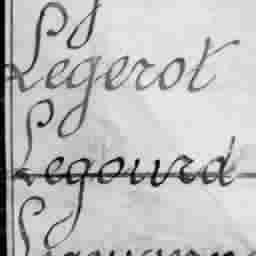 Legerot
Legourd